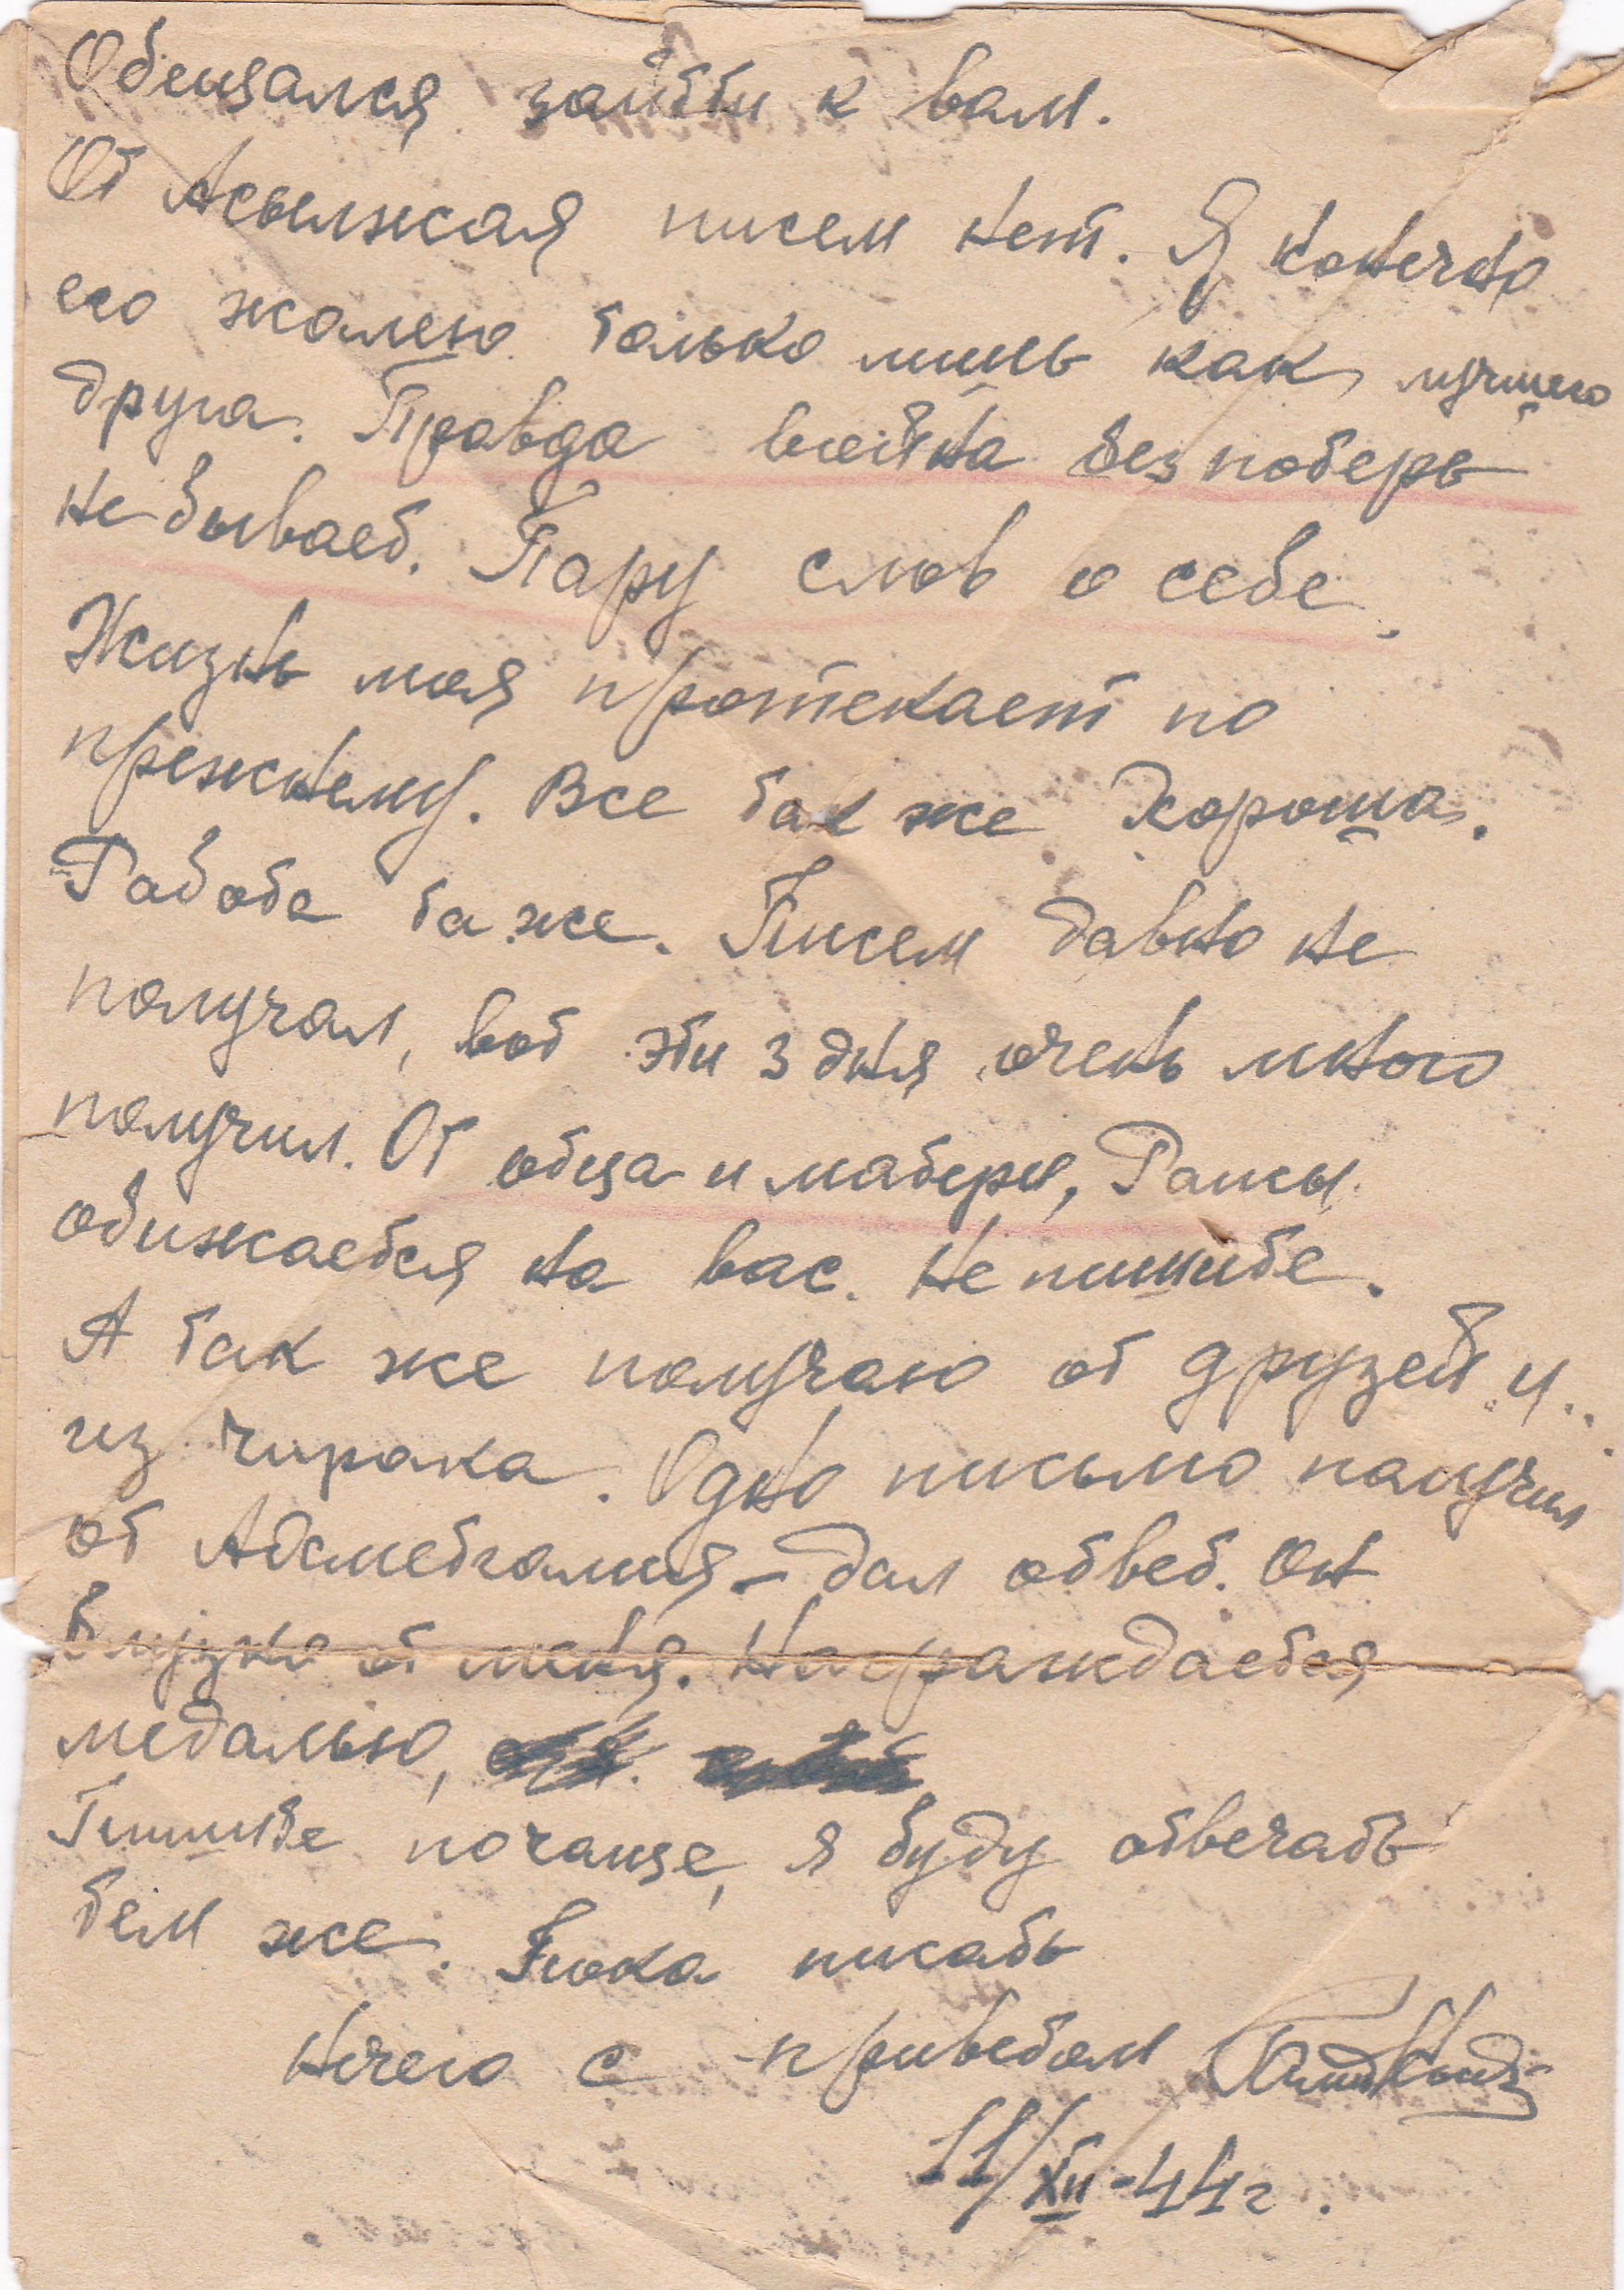 Обещался зайти к вам.
От Асылжая писем нет. Я конечно
его жалею только лишь как лучшего
друга. Правда война без потерь
не бывает. Пару слов о себе.
Жизнь моя протекает по
прежнему. Все так же хороша.
Работа та же. Писем давно не
получал, вот эти 3 дня очень много
получил. От отца и матери, Раисы.
обижается на вас. Не пишите.
А так же получаю от друзей и
из Чирака. Одно письмо получил
от – дал ответ. Он
близко от меня. Награждается
медалью,
Пишите почаще, я буду отвечать
тем же. Пока писать
нечего с приветом
11/XII-44г.